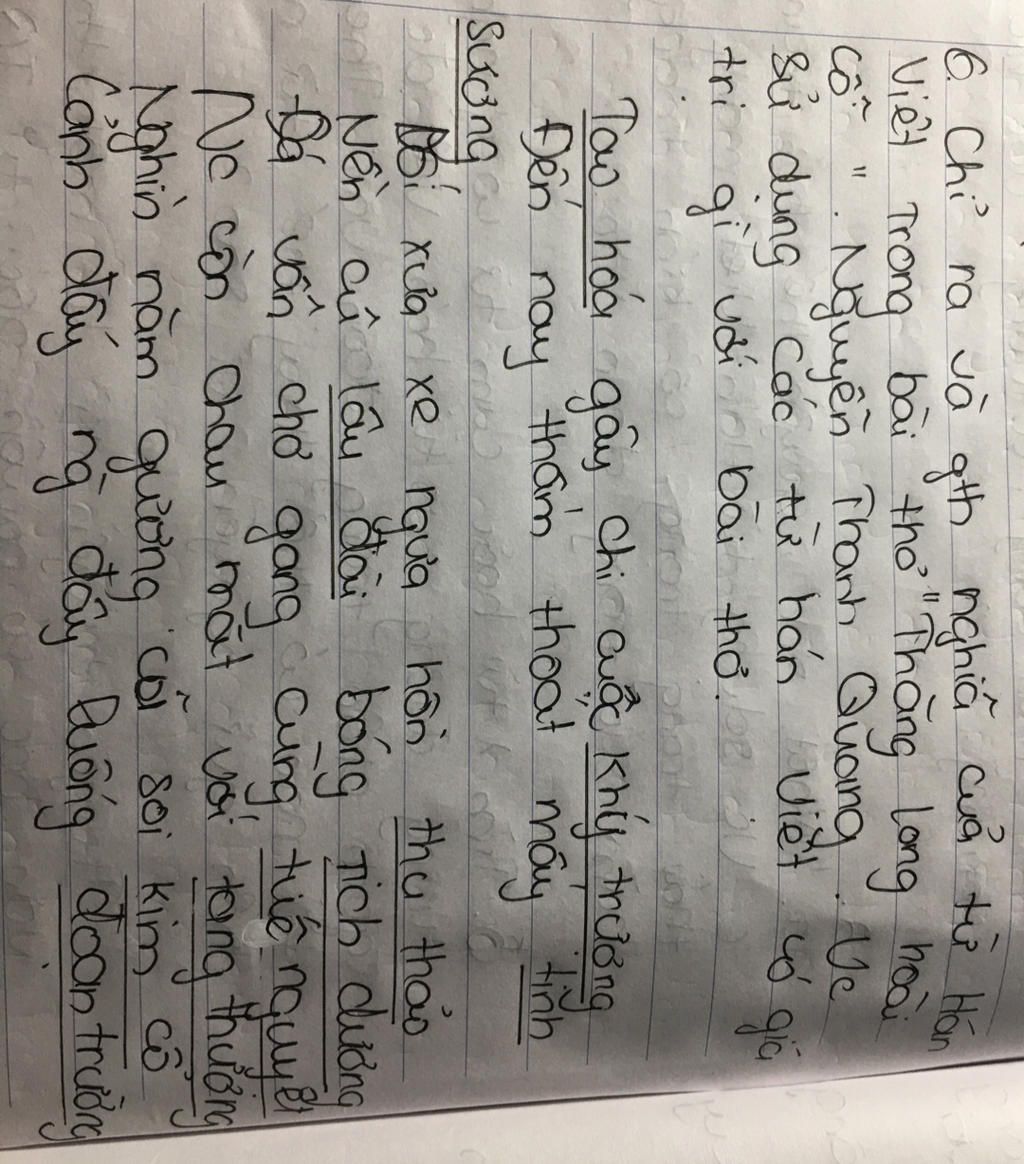 6. Chỉ ra và gth nghĩa của từ Hán
Việt trong bài thơ "Thăng Long hoài
cổ". Nguyễn Thanh Quang. Vc
sử dụng các từ hán Việt có giá
trị gì với bài thơ.
Tạo hoá gây chi cuộc khý trường
Đến nay thấm thoạt mấy tinh
sương
Dối xưa xe ngựa hồn thu thảo
Nền cũ lâu đài bóng tịch dương
Đá vẫn chơ gang cùng tiế nguyệt
Nc còn chau mặt với tang thương
Nghìn năm gương cũ soi kim cổ
Cảnh đấy ng đây luống đoạn trường